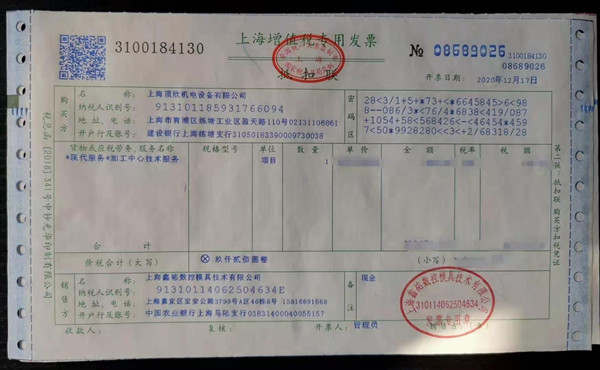 3100184130
上海增值税专用发票
抵扣联
№ 08689026
3100184130
08689026
开票日期: 2020年12月17日
购买方
名 称: 上海顶欣机电设备有限公司
纳税人识别号: 913101185931766094
地址、电话: 上海市青浦区练塘工业区盈天路110号02131106861
开户行及账号: 建设银行上海练塘支行31050183390009730038
密码区
28<3/1+5+*73+<*6645845>6<98
8--086/3*<76/4*6838<419/087
+1054+58<56826<--<46454*459
7<50*9928280<<3<+2/68318/28
货物或应税劳务、服务名称 规格型号 单位 数 量 单 价 金 额 税率 税 额
*现代服务*加工中心技术服务 项目
价税合计（大写） ⊗ 玖仟贰佰圆整 （小写）
销售方
名 称: 上海鑫祐数控模具技术有限公司
纳税人识别号: 91310114062504634E
地址、电话: 上海嘉定区宝安公路3799号A区46栋8号 13816891568
开户行及账号: 中国农业银行上海马陆支行03831400040055157
备注
现金
上海鑫祐数控模具技术有限公司
91310114062504634E
发票专用章
收款人: 复核: 开票人: 管理员
第二联：抵扣联 购买方扣税凭证